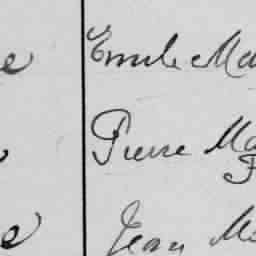 e Emile Ma
Pierre Ma
e Jean M